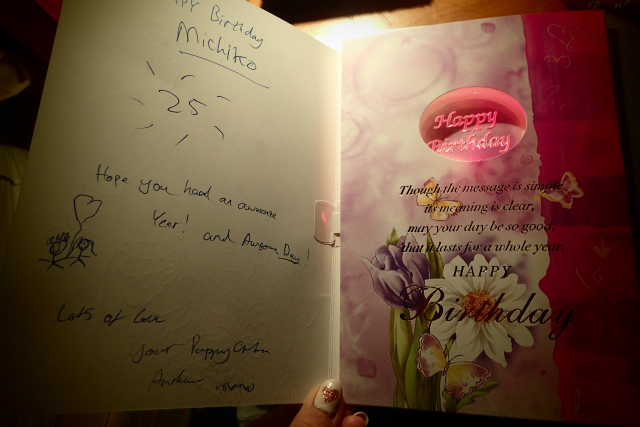 Birthday
Michiko
25
Hope you had an awesome
Year! and Awesome Day!
Lots of Love
your
Andrew
Happy
Birthday
Though the message is simple,
its meaning is clear,
may your day be so good,
that it lasts for a whole year.
HAPPY
Birthday